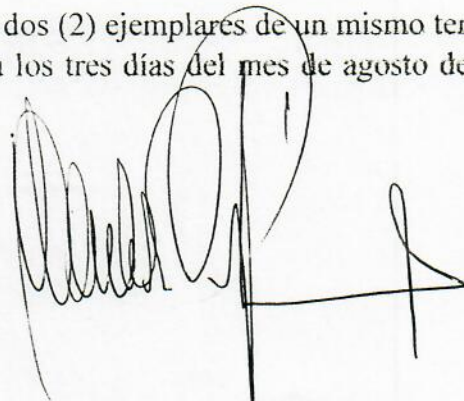 dos (2) ejemplares de un mismo ten
los tres días del mes de agosto de